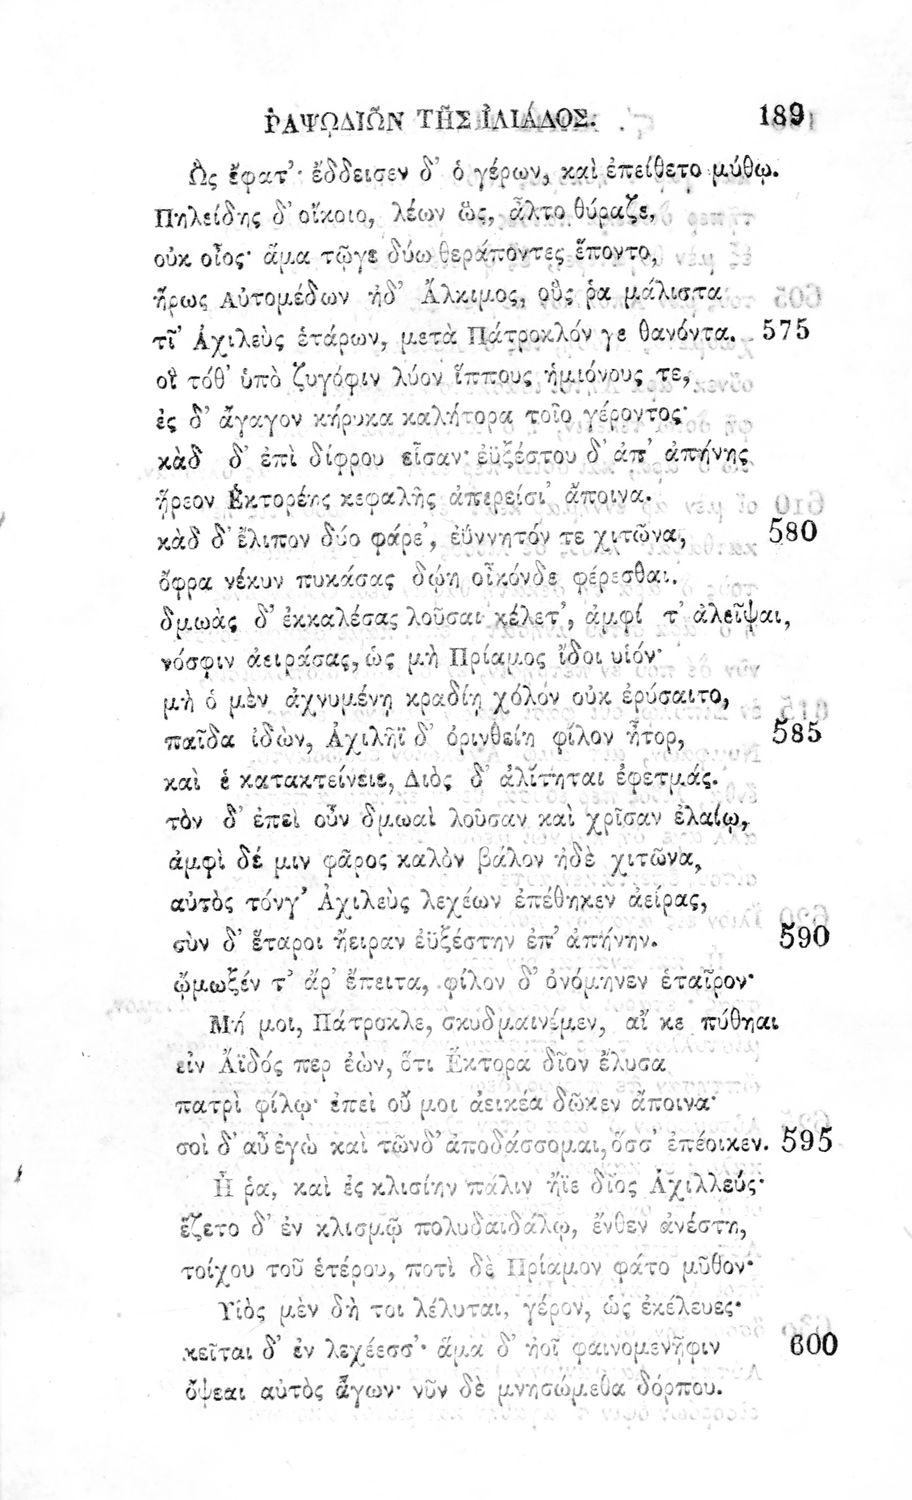 ῬΑΨΩΔΙΩ͂Ν ΤΗ͂Σ ἸΛΙΆΔΟΣ. 189
Ὣς ἔφατ'· ἔδδεισεν δ' ὁ γέρων, καὶ ἐπείθετο μύθῳ.
Πηλείδης δ' οἴκοιο, λέων ὣς, ἆλτο θύραζε,
οὐκ οἶος· ἅμα τῷγε δύω θεράποντες ἕποντο,
ἥρως Αὐτομέδων ἠδ' Ἄλκιμος, οὕς ῥα μάλιστα
τῖ' Ἀχιλεὺς ἑτάρων, μετὰ Πάτροκλόν γε θανόντα. 575
οἳ τόθ' ὑπὸ ζυγόφιν λύον ἵππους ἡμιόνους τε,
ἐς δ' ἄγαγον κήρυκα καλήτορα τοῖο γέροντος·
κὰδ δ' ἐπὶ δίφρου εἷσαν· ἐϋξέστου δ' ἀπ' ἀπήνης
ᾕρεον Ἑκτορέης κεφαλῆς ἀπερείσι' ἄποινα.
κὰδ δ' ἔλιπον δύο φάρε', ἐΰννητόν τε χιτῶνα, 580
ὄφρα νέκυν πυκάσας δώῃ οἶκόνδε φέρεσθαι.
δμωὰς δ' ἐκκαλέσας λοῦσαι κέλετ', ἀμφί τ' ἀλεῖψαι,
νόσφιν ἀειράσας, ὡς μὴ Πρίαμος ἴδοι υἱόν·
μὴ ὁ μὲν ἀχνυμένῃ κραδίῃ χόλον οὐκ ἐρύσαιτο,
παῖδα ἰδὼν, Ἀχιλῆϊ δ' ὀρινθείη φίλον ἦτορ, 585
καὶ ἑ κατακτείνειε, Διὸς δ' ἀλίτηται ἐφετμάς.
τὸν δ' ἐπεὶ οὖν δμωαὶ λοῦσαν καὶ χρῖσαν ἐλαίῳ,
ἀμφὶ δέ μιν φᾶρος καλὸν βάλον ἠδὲ χιτῶνα,
αὐτὸς τόνγ' Ἀχιλεὺς λεχέων ἐπέθηκεν ἀείρας,
σὺν δ' ἕταροι ἤειραν ἐϋξέστην ἐπ' ἀπήνην. 590
ᾤμωξέν τ' ἄρ' ἔπειτα, φίλον δ' ὀνόμηνεν ἑταῖρον·
Μή μοι, Πάτροκλε, σκυδμαινέμεν, αἴ κε πύθηαι
εἰν Ἄϊδός περ ἐὼν, ὅτι Ἕκτορα δῖον ἔλυσα
πατρὶ φίλῳ· ἐπεὶ οὔ μοι ἀεικέα δῶκεν ἄποινα·
σοὶ δ' αὖ ἐγὼ καὶ τῶνδ' ἀποδάσσομαι, ὅσσ' ἐπέοικεν. 595
Ἦ ῥα, καὶ ἐς κλισίην πάλιν ἤϊε δῖος Ἀχιλλεύς·
ἕζετο δ' ἐν κλισμῷ πολυδαιδάλῳ, ἔνθεν ἀνέστη,
τοίχου τοῦ ἑτέρου, ποτὶ δὲ Πρίαμον φάτο μῦθον·
Υἱὸς μὲν δή τοι λέλυται, γέρον, ὡς ἐκέλευες·
κεῖται δ' ἐν λεχέεσσ'· ἅμα δ' ἠοῖ φαινομένηφιν 600
ὄψεαι αὐτὸς ἄγων· νῦν δὲ μνησώμεθα δόρπου.